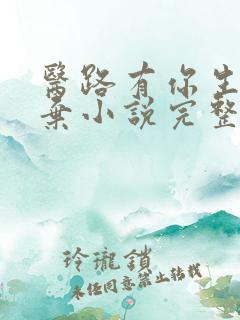 醫路有你生
棄小說完整
玲瓏鎖
未任同意禁止轉載